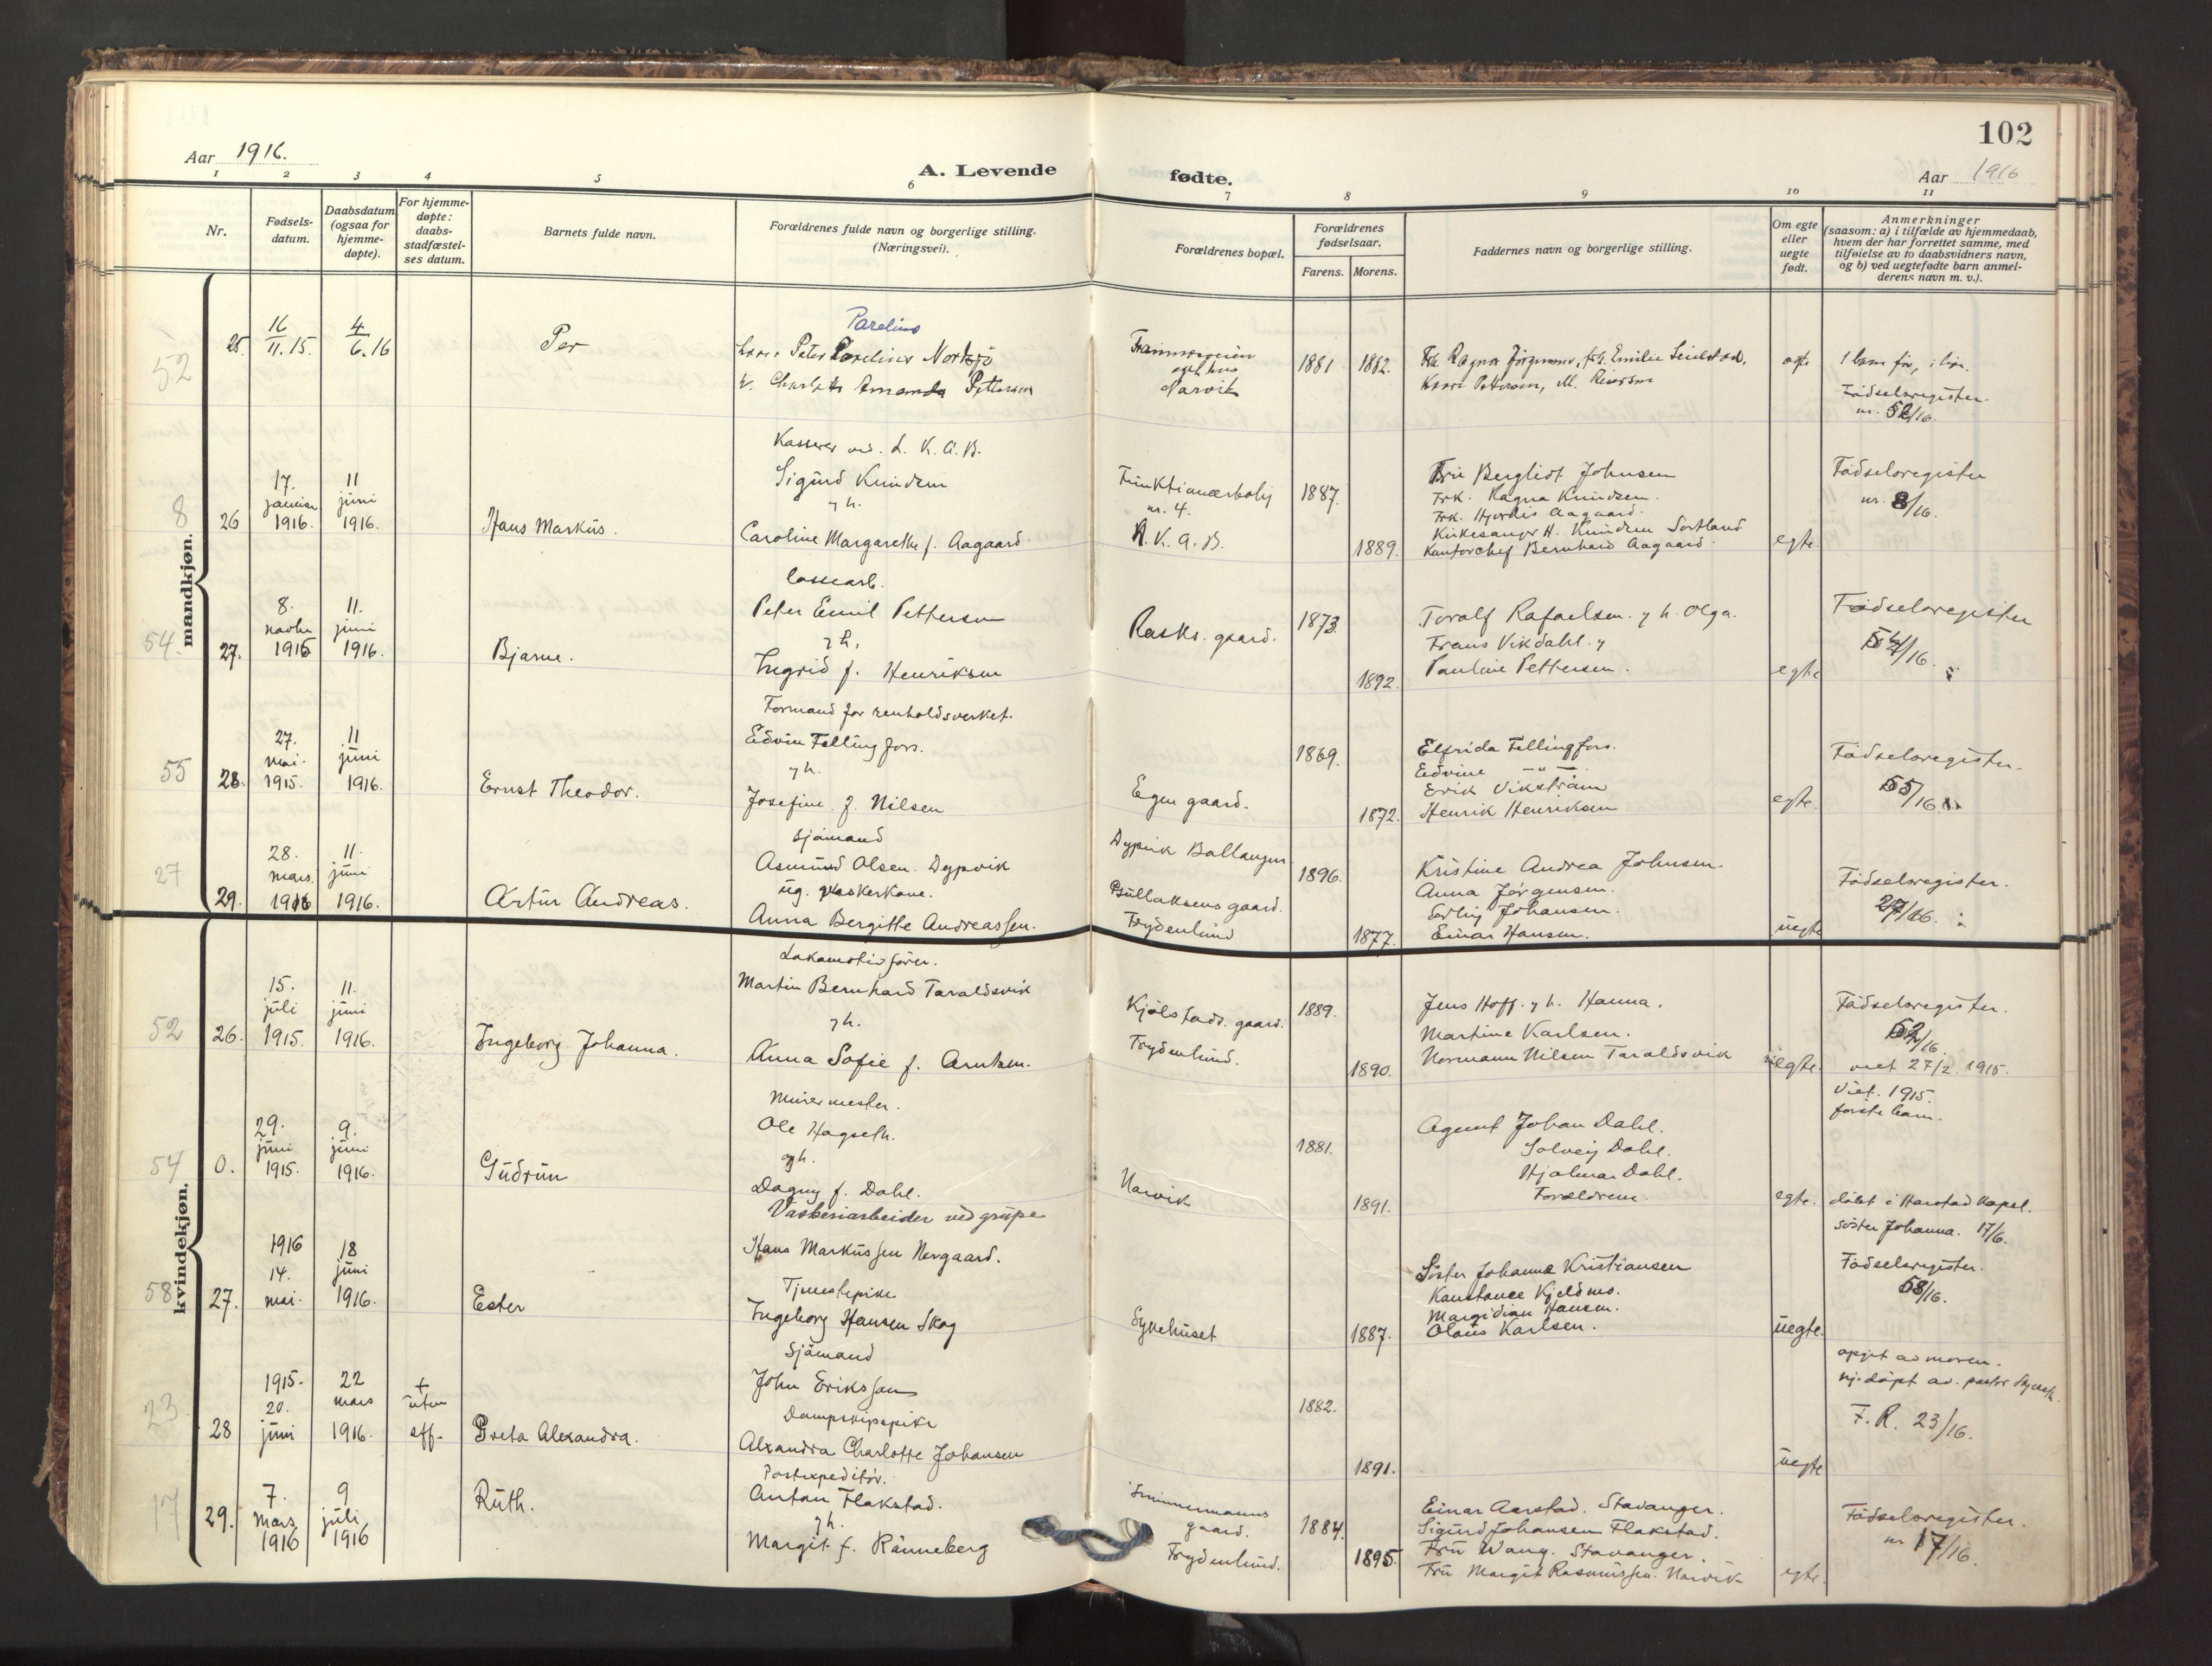 102
Aar 1916.
A. Levende
fødte.
Aar 1916
1 2 3 4 5 6 7 8 9 10 11
Nr.
Fødsels-
datum.
Daabsdatum
(ogsaa for
hjemme-
døpte).
For hjemme-
døpte:
daabs-
stadfæstel-
ses datum.
Barnets fulde navn.
Forældrenes fulde navn og borgerlige stilling.
(Næringsvei).
Forældrenes bopæl.
Forældrenes
fødselsaar.
Farens. Morens.
Faddernes navn og borgerlige stilling.
Om egte
eller
uegte
født.
Anmerkninger
(saasom: a) i tilfælde av hjemmedaab,
hvem der har forrettet samme, med
tilføielse av to daabsvidners navn,
og b) ved uegtefødte barn anmel-
derens navn m. v.).
mandkjøn.
52
25.
16
11.15.
4
6.16
Per
Parelius
Peter Parelius
Amanda Pettersen
Narvik
1881 1882.
Frk. Ragna
egte
Födselsregister
nr. 52/16.
8
26
17.
januar
1916.
11
juni
1916.
Hans Markus.
Kasserer ved. L. K. A. B.
Sigurd Knudsen
g h.
Caroline Margarethe f. Aagaard.
Funktionærbolig
nr. 4.
1887.
1889.
Fru Bergliot Johnsen
Frk. Ragna Knudsen.
Frk. Hjordis Aagaard.
Kirkesanger H. Knudsen Sortland
Kontorchef Bernhard Aagaard.
egte.
Födselsregister
nr. 8/16.
54.
27.
8.
novbr
1915
11.
juni
1916.
Bjarne.
lossearb.
Peter Emil Pettersen
g h.
Ingrid f. Henriksen
Rasks. gaard.
1873.
1892.
Toralf Rafaelsen. g h. Olga.
Frans Vikdahl. g
Pauline Pettersen.
egte
Födselsregister
54/16.
55
28.
27.
mai.
1915.
11
juni
1916.
Ernst Theodor.
Formand for renholdsverket.
Edvin Fellingfors.
g h.
Josefine. f. Nilsen
Egen gaard.
1869.
1872.
Elfrida Fellingfors.
Edvine — " —
Erik Vikström
Henrik Henriksen
egte.
Födselsregister.
55/16.
27
29.
28.
mars.
1916
11.
juni
1916.
Artur Andreas.
sjömand
Asmund Olsen. Dypvik
ug. vaskerkone.
Anna Bergitte Andreassen.
Dypvik Ballangen
gaard.
Frydenlund
1896.
1877.
Kristine Andrea Johnsen.
Anna Jørgensen.
Erling Johansen.
Einar Hansen.
uegte
Födselsregister.
27/16.
kvindekjøn.
52
26.
15.
juli
1915.
11.
juni
1916.
Ingeborg Johanna.
Lokomotivförer.
Martin Bernhard Taraldsvik
g h.
Anna Sofie f. Arntsen.
Kjölstads. gaard.
Frydenlund.
1889.
1890.
Jens Hoff. g h. Hanna.
Martine Karlsen.
Normann Nilsen Taraldsvik
egte.
Födselsregister.
52/16.
viet 27/2. 1915.
54
0.
29.
juni
1915.
9.
juni
1916.
Gudrun
Murermester.
Ole Hagseth.
g h.
Dagny f. Dahl.
Narvik
1881.
1891.
Agent Johan Dahl.
Solveig Dahl.
Hjalmar Dahl.
Forældrene.
egte.
Viet. 1915.
förste barn.
döbt i Harstad Kapel.
58
27.
1916
14.
mai.
18
juni
1916.
Ester
Vaskeriarbeider ved grube
Hans Markussen Norgaard.
Tjenestepike
Ingeborg Hansen Skog
Sykehuset
1887.
Söster Johanne Kristiansen
Konstance Kjeldmo.
Margidian Hansen.
Olaus Karlsen.
uegte.
söster Johanna. 17/6.
Födselsregister.
58/16.
23.
28
1915.
20.
juni
22
mars
1916.
+
uten
eff.
Greta Alexandra.
Sjömand
John Eriksson
Dampskipspike
Alexandra Charlotte Johansen
1882.
1891.
uegte
opgit av moren.
hj. döpt av. pastor
F. R. 23/16.
17
29.
7.
mars.
1916
9
juli
1916
Ruth.
Postexpeditör.
Anton Flakstad.
g h.
Margit f. Rönneberg
gaard.
Frydenlund.
1884.
1895.
Einar Aarstad. Stavanger.
Sigurd Johansen Flakstad.
Fru Wang. Stavanger.
Fru Margit Rasmussen. Narvik
egte.
Födselsregister.
nr 17/16.